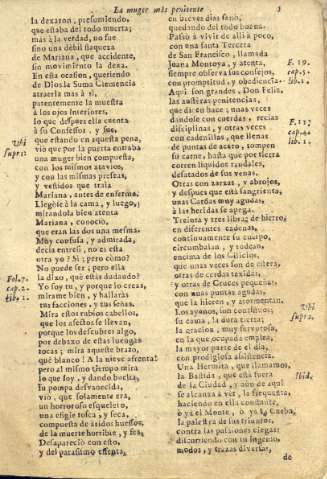 La muger más penitente 3
la dexaron, presumiendo,
que estaba del todo muerta;
mas à la verdad, no fue
sino una debil flaqueza
de Mariana, que accidente,
sin movimiento la dexa.
En esta ocasion, queriendo
de Dios la Suma Clemencia
atraerla mas à sì,
patentemente la muestra
à los ojos interiores,
lo que despues ella cuenta
à su Confessor, y fue,
que estando en aquesta pena,
viò que por la puerta entraba
una muger bien compuesta,
con los mismos atavios,
y con las mismas preseas,
y vestidos que traìa
Mariana antes de enferma.
Llegòse à la cama, y luego,
mirandola bien atenta
Mariana, conociò,
que eran las dos una mesma.
Muy confusa, y admirada,
decia entre sì, no es esta
otra yo? Si; pero còmo?
No puede ser; pero ella
la dixo, què estàs dudando?
Yo soy tu, y porque lo creas,
mirame bien, y hallaràs
tus facciones, y tus señas.
Mira estos rubios cabellos,
que los afectos se llevan,
porque los descubres algo,
por debaxo de estas luengas
tocas; mira aqueste brazo,
què blanco! A la nieve afrenta!
pero al mismo tiempo mira
lo que soy, y dando buelta,
su pompa desvanecida,
viò, que solamente era,
un horroroso esqueleto,
una efigie tosca, y seca,
compuesta de aridos huessos,
de la muerte horrible, y fea.
Desapareciò con esto,
y del parasismo essenta,
Ubi
supr:
Fol. 7.
cap. 2.
lib. 1.
en breves dias sanò,
quedando del todo buena.
Passò à vivir de alli à poco,
con una santa Tercera
de San Francisco, llamada
Juana Montoya, y atenta,
siempre observa sus consejos,
con promptitud, y obediencia.
Aqui son grandes, Don Felix,
las austèras penitencias,
que dice: en hace; unas veces
dandose con cuerdas, recias
disciplinas, y otras veces
con cadenillas, que llenas
de puntas de acero, rompen
su carne, hasta que por tierra
corren liquidos raudales,
desatados de sus venas.
Otras con zarzas, y abrojos,
y despues que està sangrienta,
unas Cañas muy agudas,
à las heridas se apega.
Treinta y tres libras de hierro,
en diferentes cadenas,
continuamente su cuerpo,
circumbalan, y rodean,
encima de los Cilicios,
que unas veces son de estera,
otras de cerdas texidas,
y otras de Cruces pequeñas,
con unas puntas agudas,
que la hieren, y atormentan.
Los ayunos, son continuos;
su cama, la dura tierra;
la oracion, muy fervorosa,
en la que ocupada emplea,
la mayor parte de el dia,
con prodigiosa assistencia.
Una Hermita, que llamamos,
la Bastida, que està fuera
de la Ciudad, y aùn de aqui
se alcanza à ver, la frequenta,
haciendo en ella constante,
ò yà el Monte, ò yà la Cueba,
la palestra de sus triunfos,
contra las passiones ciegas;
discurriendo con su ingenio,
modos, y trazas diversas,
F. 19.
cap. 5.
lib. 1.
F. 15;
cap. 4.
lib. 1.
Ubi
supra.
Ibid.
de